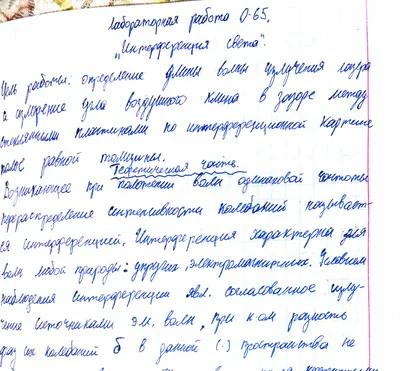 Лабораторная работа О-65.
"Интерференция света".
Цель работы: определение длины волны излучения лазера
и измерение угла воздушного клина в зазоре между
стеклянными пластинами по интерференционной картине
полос равной толщины.
Теоретическая часть.
Возникающее при наложении волн одинаковой частоты
перераспределение интенсивности колебаний называет-
ся интерференцией. Интерференция характерна для
волн любой природы: упругих, электромагнитных. Условием
наблюдения интерференции явл. согласованное излу-
чение источниками э.м. волн, при к-ом разность
фаз их колебаний δ в данной (.) пространства не